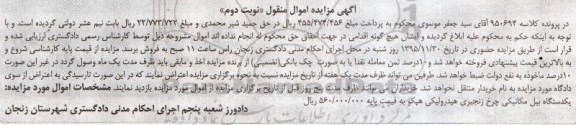 آگهی مزایده اموال منقول «نوبت دوم»
در پرونده کلاسه ۹۵۰۶۹۴ آقای سید جعفر موسوی محکوم به پرداخت مبلغ ۴۵۵/۴۷۴/۴۵۶ ریال در حق حمید شیر محمدی و مبلغ ۲۲/۷۷۳/۷۲۳ ریال بابت نیم عشر دولتی گردیده است. و با
توجه به اینکه حکم به محکوم علیه ابلاغ گردیده و ایشان هیچ گونه اقدامی در جهت احقاق حق محکوم له انجام نداده اند اموال مشروحه ذیل توسط کارشناس رسمی دادگستری ارزیابی شده و
قرار است از طریق مزایده حضوری در تاریخ ۱۳۹۵/۱۱/۲۰ روز شنبه در محل اجرای احکام مدنی دادگستری زنجان راس ساعت ۱۱ صبح به فروش برسد. مزایده از قیمت پایه کارشناسی شروع و
به بالاترین قیمت پیشنهادی فروخته خواهد شد و ۱۰درصد ثمن معامله نقدا یا به صورت چک بانکی(تضمینی) از برنده مزایده اخذ و مابقی باید ظرف مدت یک ماه وصول گردد در غیر این صورت
۱۰درصد ماخوذه به نفع دولت ضبط خواهد شد. طرفین می تواند ظرف مدت یک هفته از تاریخ مزایده نسبت به نحوه برگزاری مزایده اعتراض نمایند که در این صورت تارسیدگی به اعتراض از سوی
دادگاه مورد مزایده به نام خریدار منتقل نخواهد شد. خریداران می توانند ظرف مدت پنج روز قبل از تاریخ برگزاری مزایده از اموال مورد مزایده بازدید نمایند. مشخصات اموال مورد مزایده:
یکدستگاه بیل مکانیکی چرخ زنجیری هیدرولیکی هپکو به قیمت پایه ۵۶۰/۰۰۰/۰۰۰ ریال
دادورز شعبه پنجم اجرای احکام مدنی دادگستری شهرستان زنجان